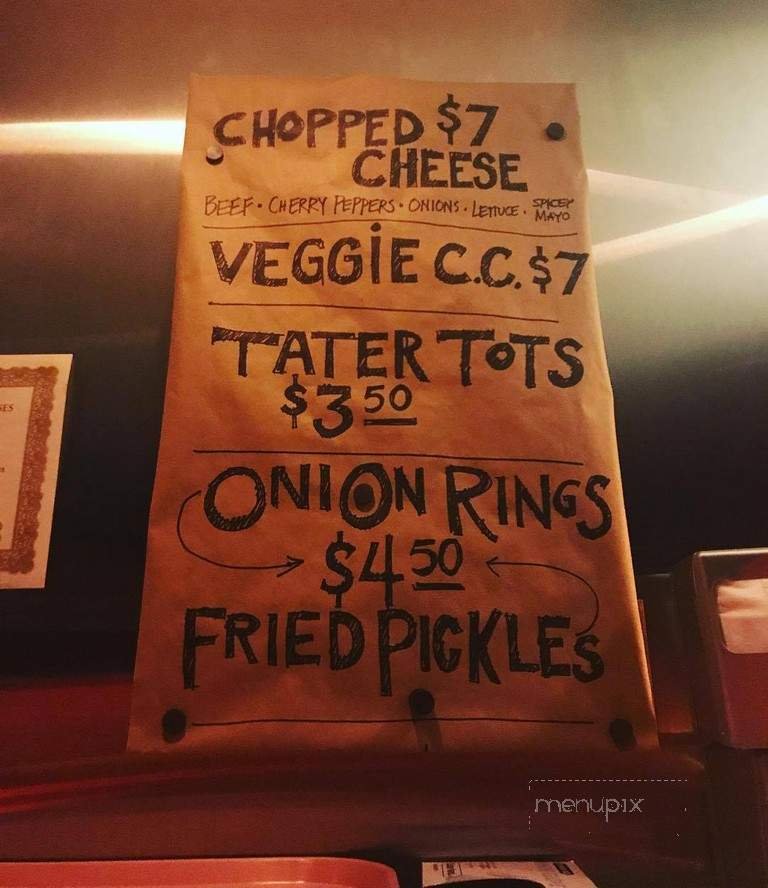 CHOPPED $7
CHEESE
BEEF · CHERRY PEPPERS · ONIONS · LETTUCE · SPICEY MAYO
VEGGiE C.C. $7
TATER TOTS
$3 50
ONION RINGS
$4 50
FRIED PICKLES
menupix